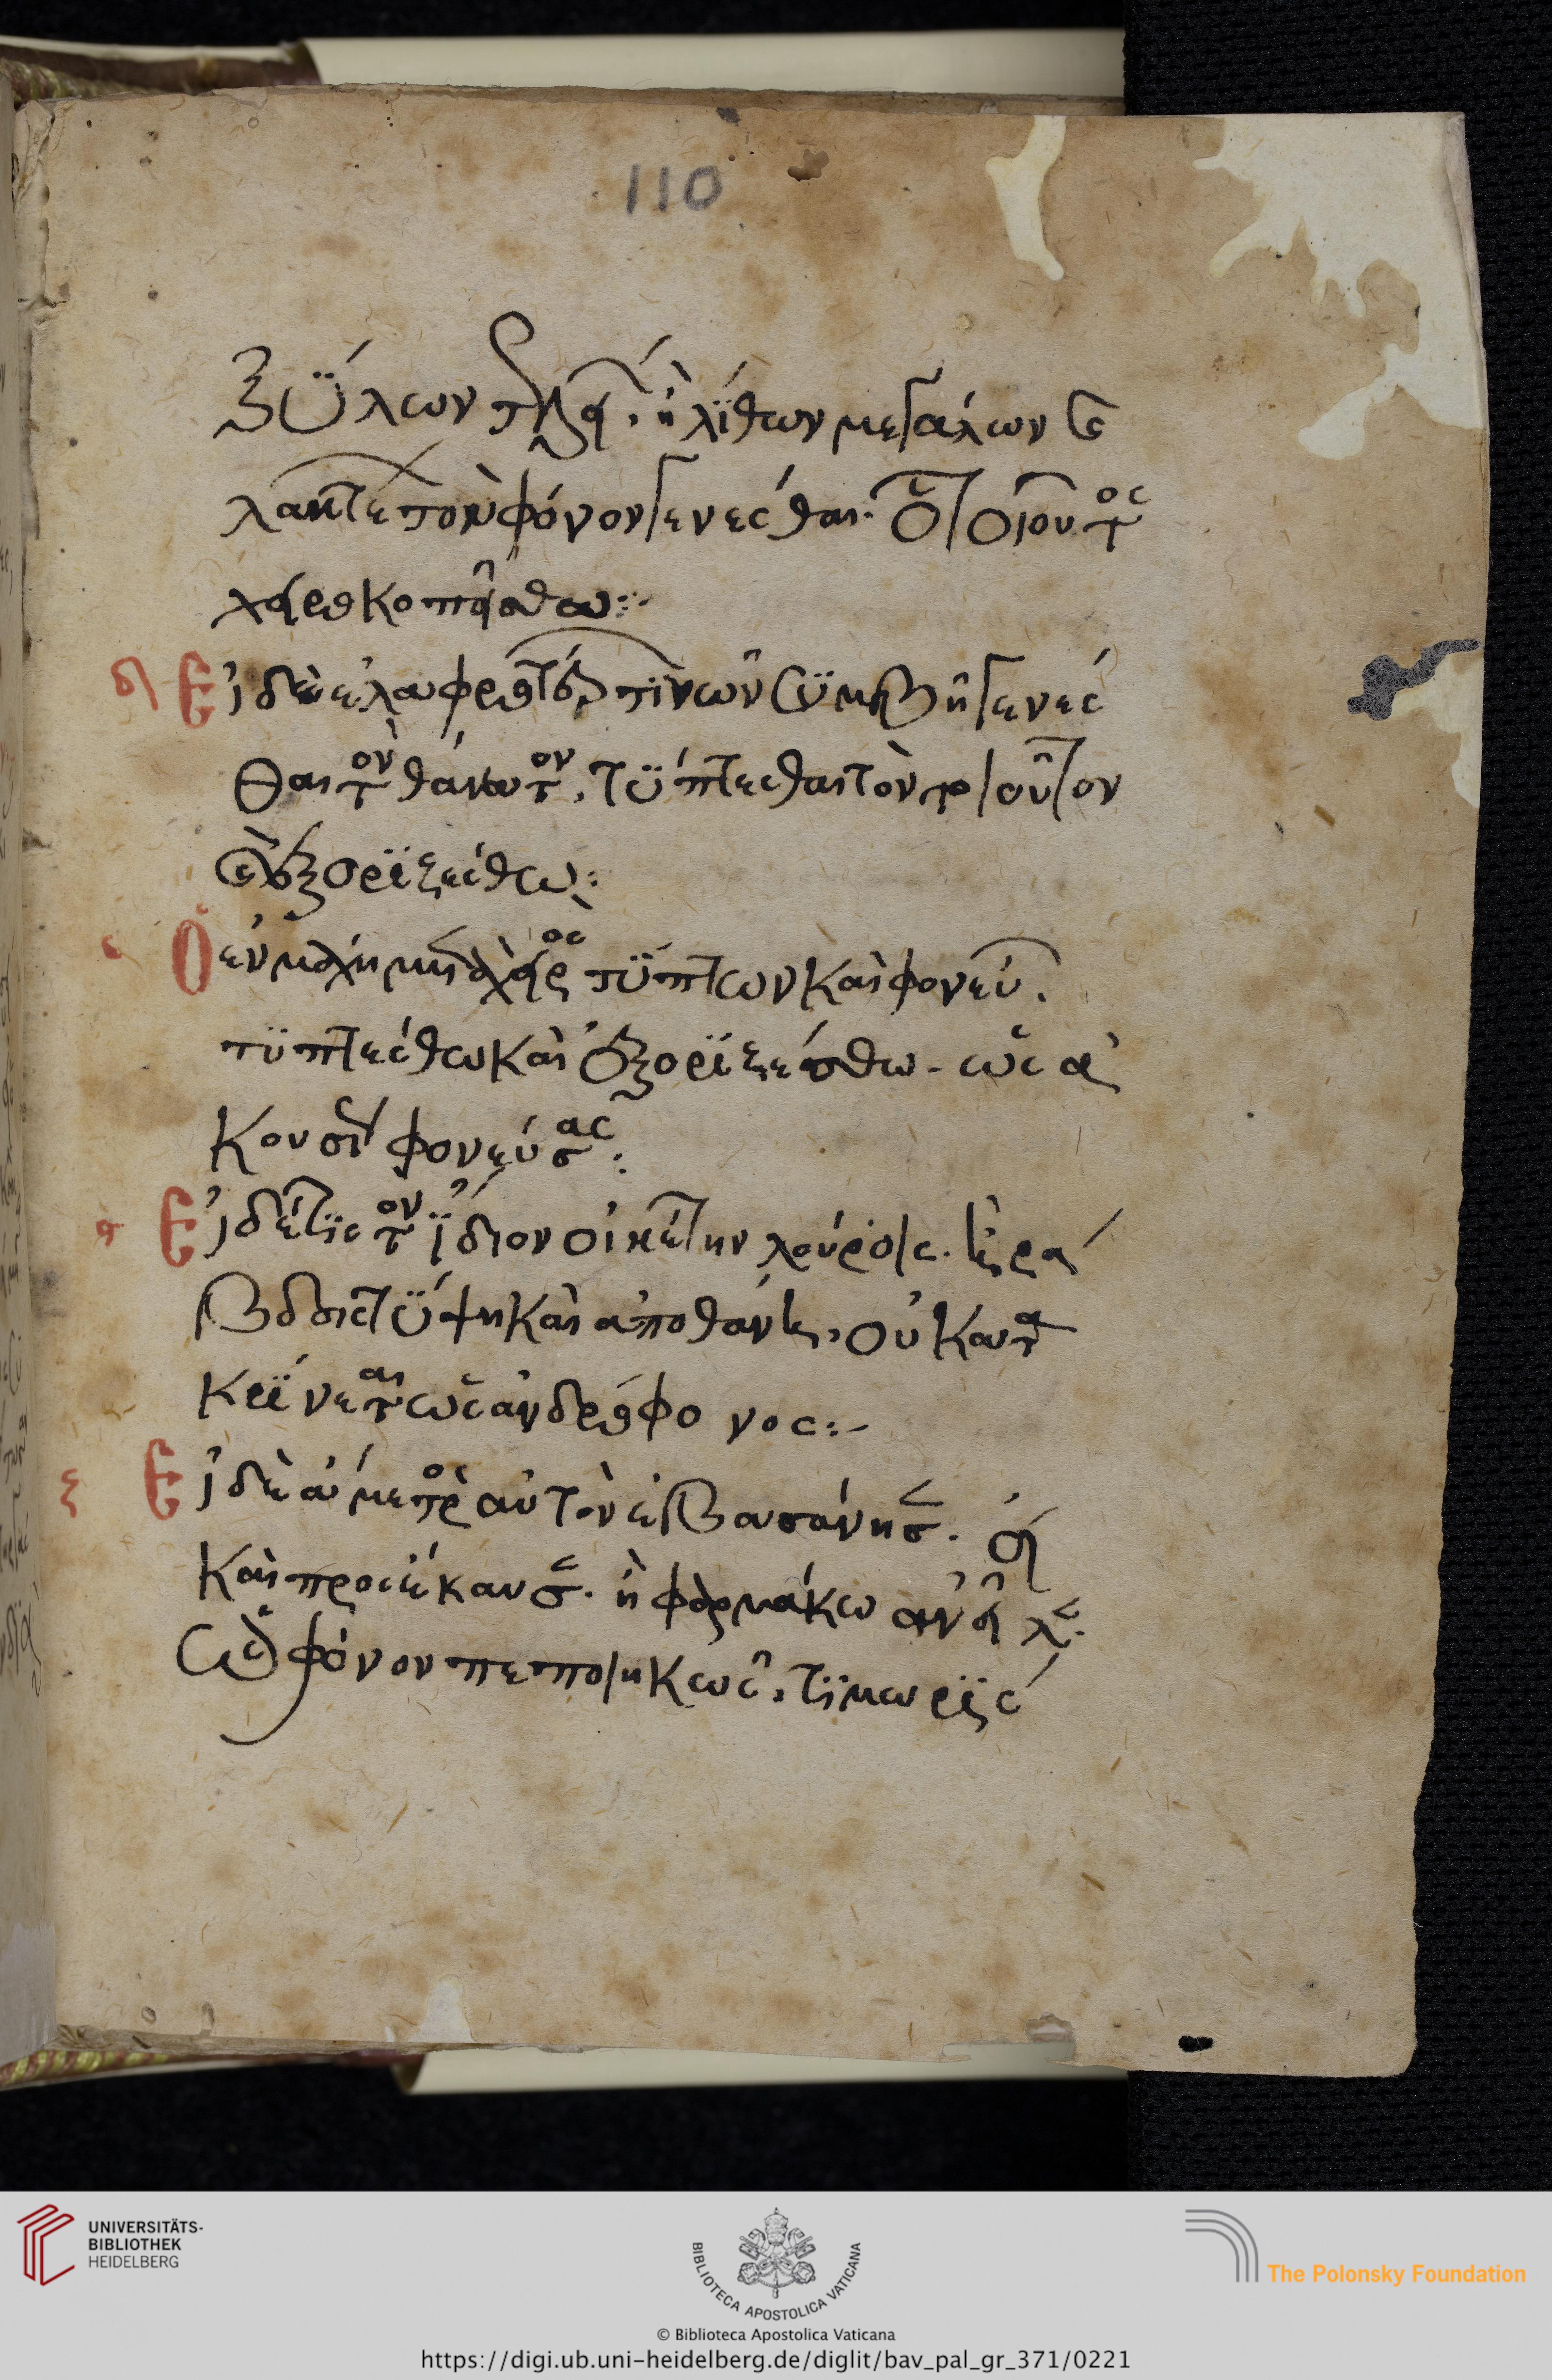 110
ξϋλων παχέων, ἢ λΐθων μεγάλων ἢ
λακτε τὸν φόνον γενέσθαι. ὁ τοιοῦτος
χειροκοπείσθω:
δ Εἰ δὲ ἐλαφροτέρων τινῶν συμβῇ γενέσ
θαι τὸν θάνατον, τύπτεσθαι τὸν τοιοῦτον
καὶ ἐξορϊζέσθω:
ε Ὁ ἐν μάχη μὴ χειρὸς τύπτων καὶ φονεύων.
τυπτέσθω καὶ ἐξορϊζέσθω. ὡς ἀ
κουσίως φονεύσας:
ϛ Εἰ δέ τις τὸν ἴδιον οἰκέτην λούροις. ἢ ρά
βδοις τύψη καὶ ἀποθάνει, οὐ κατα
κρίνεται ὡς ἀνδροφόνος:
ζ Εἰ δὲ ἀμέτρος αὐτὸν ἐβασάνησεν. ἢ
καὶ προσέκαυσεν. ἢ φαρμάκω ἀνεῖλεν.
ὡς φόνον πεποιηκὼς, τιμωρϊζέσ
UNIVERSITÄTS-
BIBLIOTHEK
HEIDELBERG
BIBLIOTECA APOSTOLICA VATICANA
The Polonsky Foundation
© Biblioteca Apostolica Vaticana
https://digi.ub.uni-heidelberg.de/diglit/bav_pal_gr_371/0221